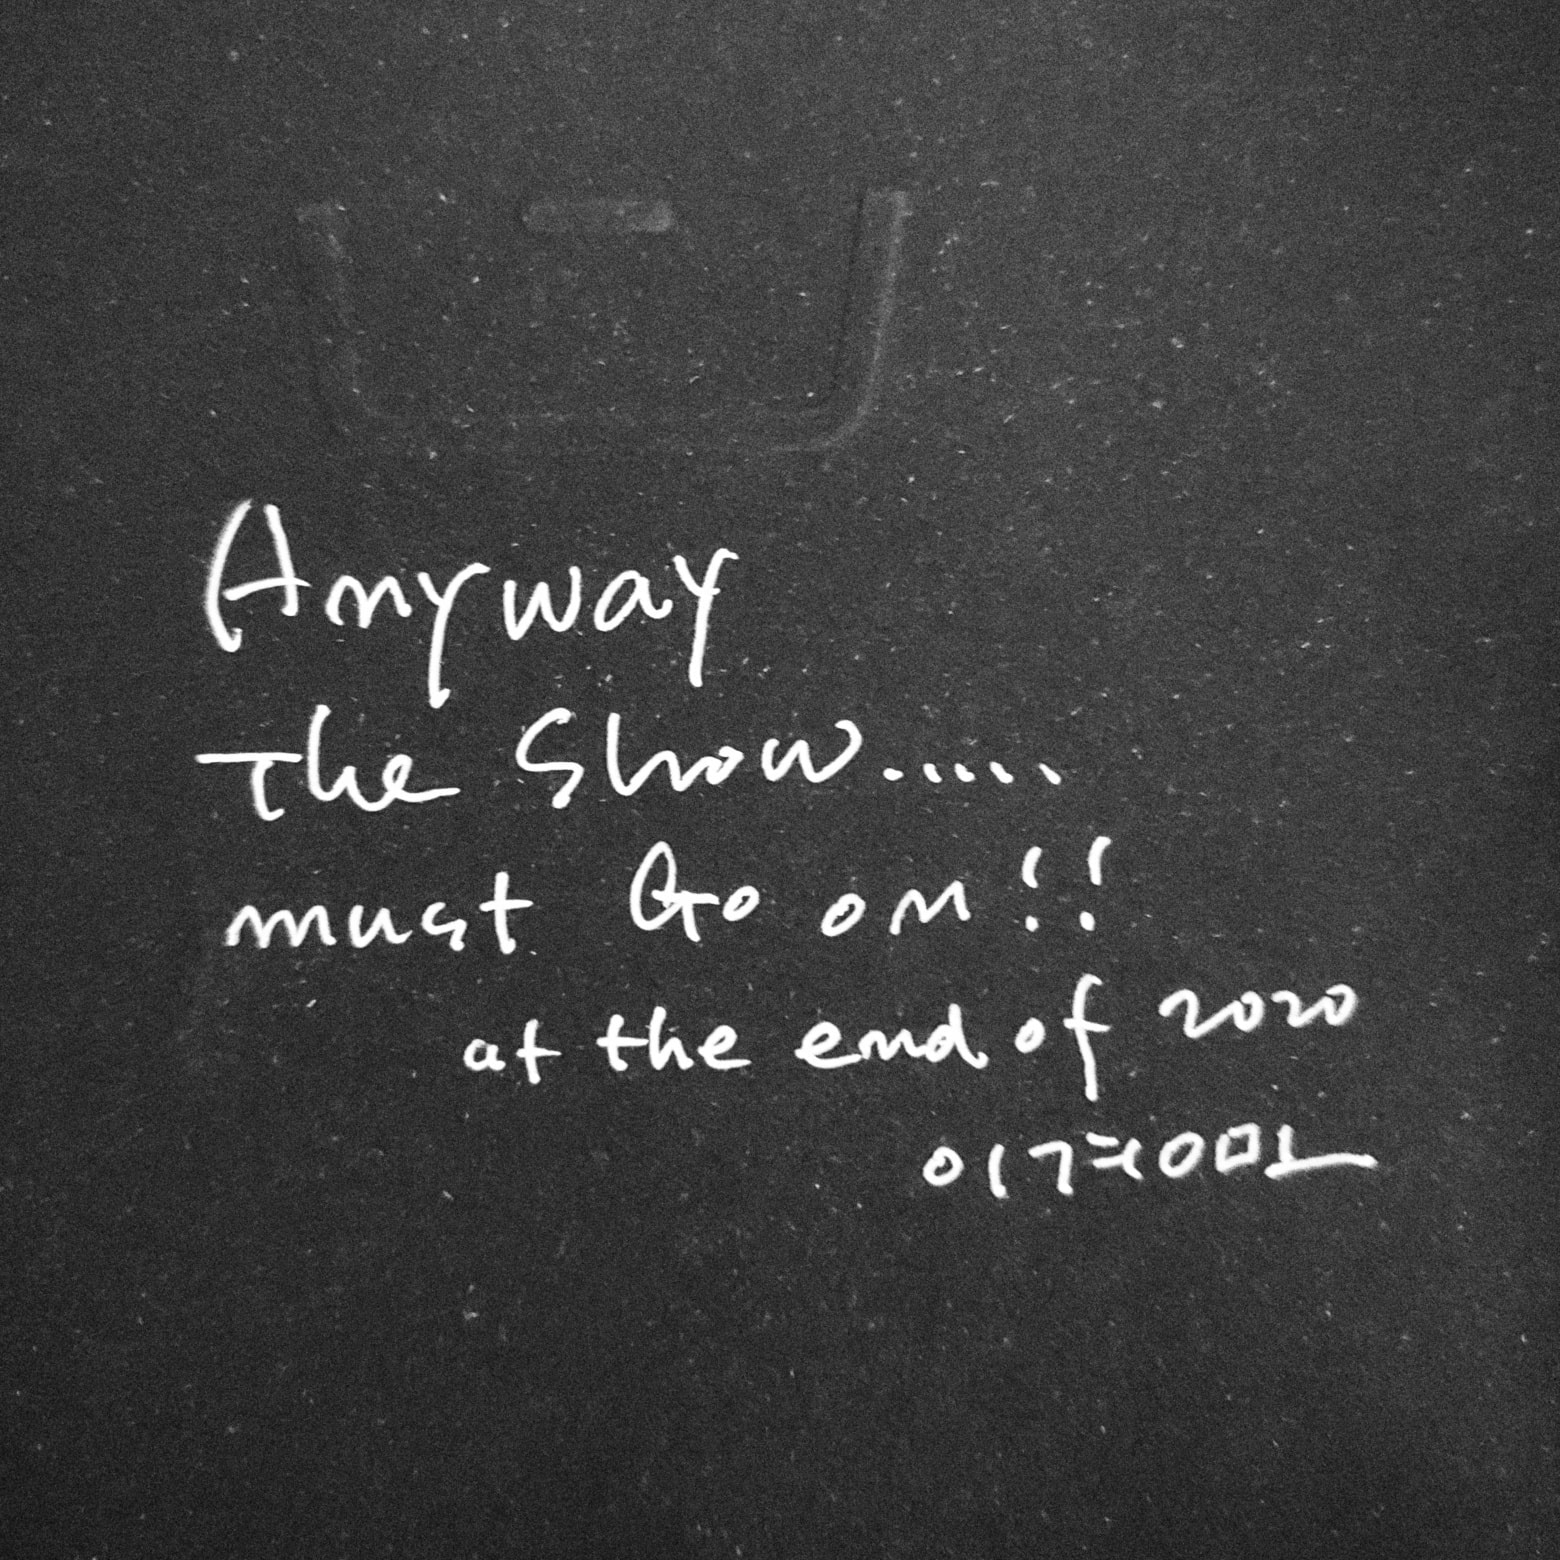 Anyway
The Show.....
must Go on!!
at the end of 2020
ㅇㅣㄱㅕㅇㅁㅗ